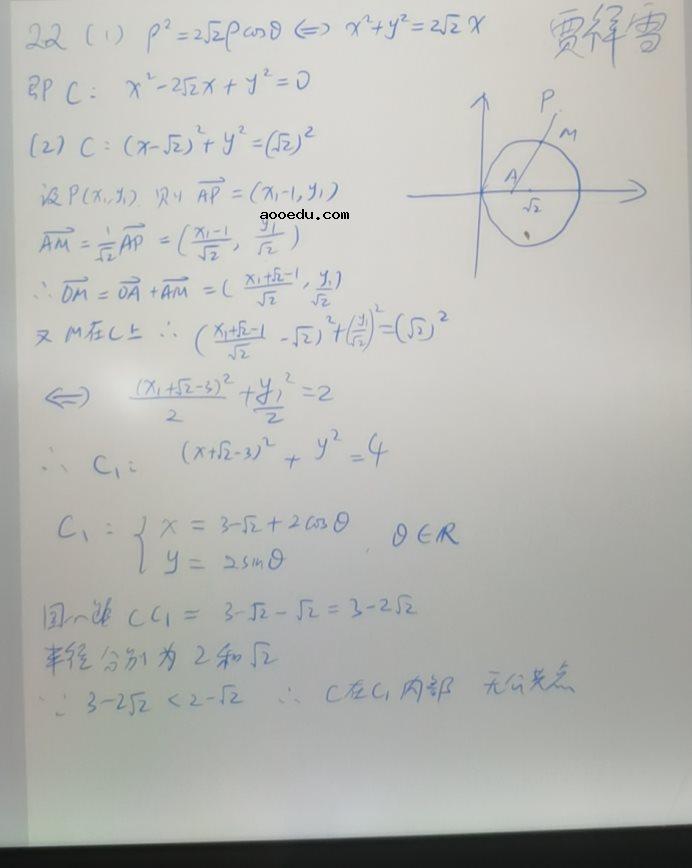 22 (1) ρ²=2√2ρcosθ ⇔ x²+y²=2√2x
贾祥雪
即 C: x²-2√2x+y²=0
(2) C: (x-√2)²+y²=(√2)²
P
M
A
√2
设P(x₁,y₁) 则 AP→=(x₁-1,y₁)
aooedu.com
AM→=1/√2 AP→=((x₁-1)/√2, y₁/√2)
∴ OM→=OA→+AM→=((x₁+√2-1)/√2, y₁/√2)
又 M在C上 ∴ ((x₁+√2-1)/√2-√2)²+(y₁/√2)²=(√2)²
⇔ (x₁+√2-3)²/2+y₁²/2=2
∴ C₁: (x+√2-3)²+y²=4
C₁: { x=3-√2+2cosθ
y=2sinθ , θ∈R
CC₁=3-√2-√2=3-2√2
半径分别为2和√2
∵ 3-2√2<2-√2 ∴ C在C₁内部 无公共点